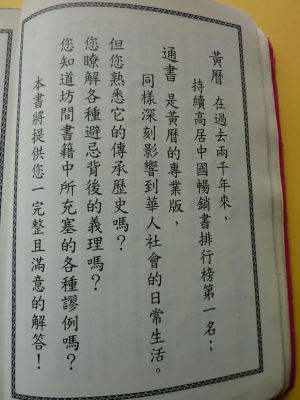 黃曆 在過去兩千年來，
持續高居中國暢銷書排行榜第一名；
通書 是黃曆的專業版，
同樣深刻影響到華人社會的日常生活。
但您熟悉它的傳承歷史嗎？
您瞭解各種避忌背後的義理嗎？
您知道坊間書籍中所充塞的各種謬例嗎？
本書將提供您一完整且滿意的解答！